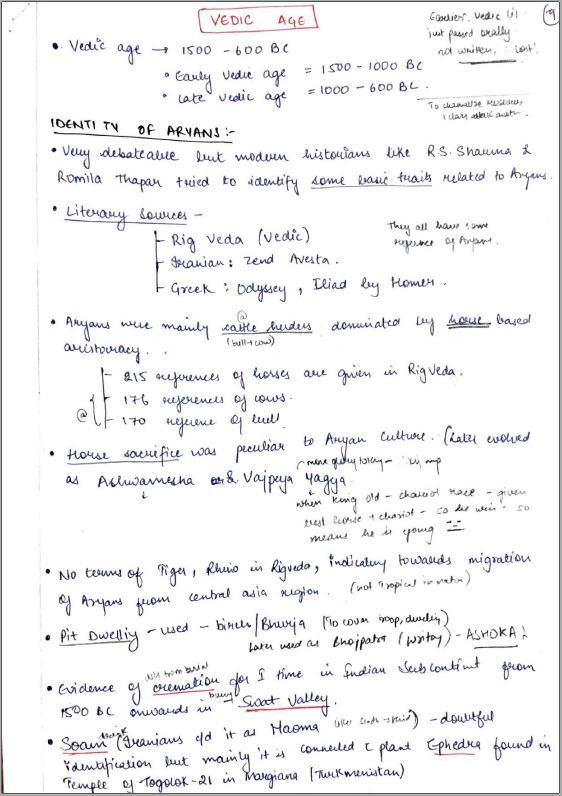 VEDIC AGE
9
Earlier, Vedic lit
just passed orally
not written,
• Vedic age → 1500 - 600 BC
• Early Vedic age = 1500 - 1000 BC
• Late Vedic age = 1000 - 600 BC.
IDENTITY OF ARYANS :-
• Very debateable but modern historians like R.S. Sharma &
Romila Thapar tried to identify some basic traits related to Aryans.
• Literary Sources -
They all have some
reference of Aryans.
- Rig Veda (Vedic)
- Iranian : Zend Avesta.
- Greek : Odyssey, Iliad by Homer.
@
• Aryans were mainly cattle herders dominated by horse based
(bull+cow)
aristocracy.
- 215 references of horses are given in RigVeda.
@ - 176 references of cows.
- 170 reference of bull.
• Horse sacrifice was peculiar to Aryan Culture. (Later evolved
as Ashwamesha & Vajpeya Yagya.
when King old - chariot race - given
best horse + chariot - so he win - so
means he is young
• No terms of Tiger, Rhino in Rigveda, indicating towards migration
of Aryans from central asia region. (not Tropical in nature)
• Pit Dwelling - used - birch/Bhurja (To cover roop, dwelling)
Later used as Bhojpatra (writing) - ASHOKA
• Evidence of cremation for I time in Indian Subcontint from
1500 BC onwards in → Swat Valley.
• Soam (Iranians c/d it as Haoma - doubtful
identification but mainly it is connected c plant Ephedra found in
Temple of Togolok-21 in Margiana (Turkmenistan)